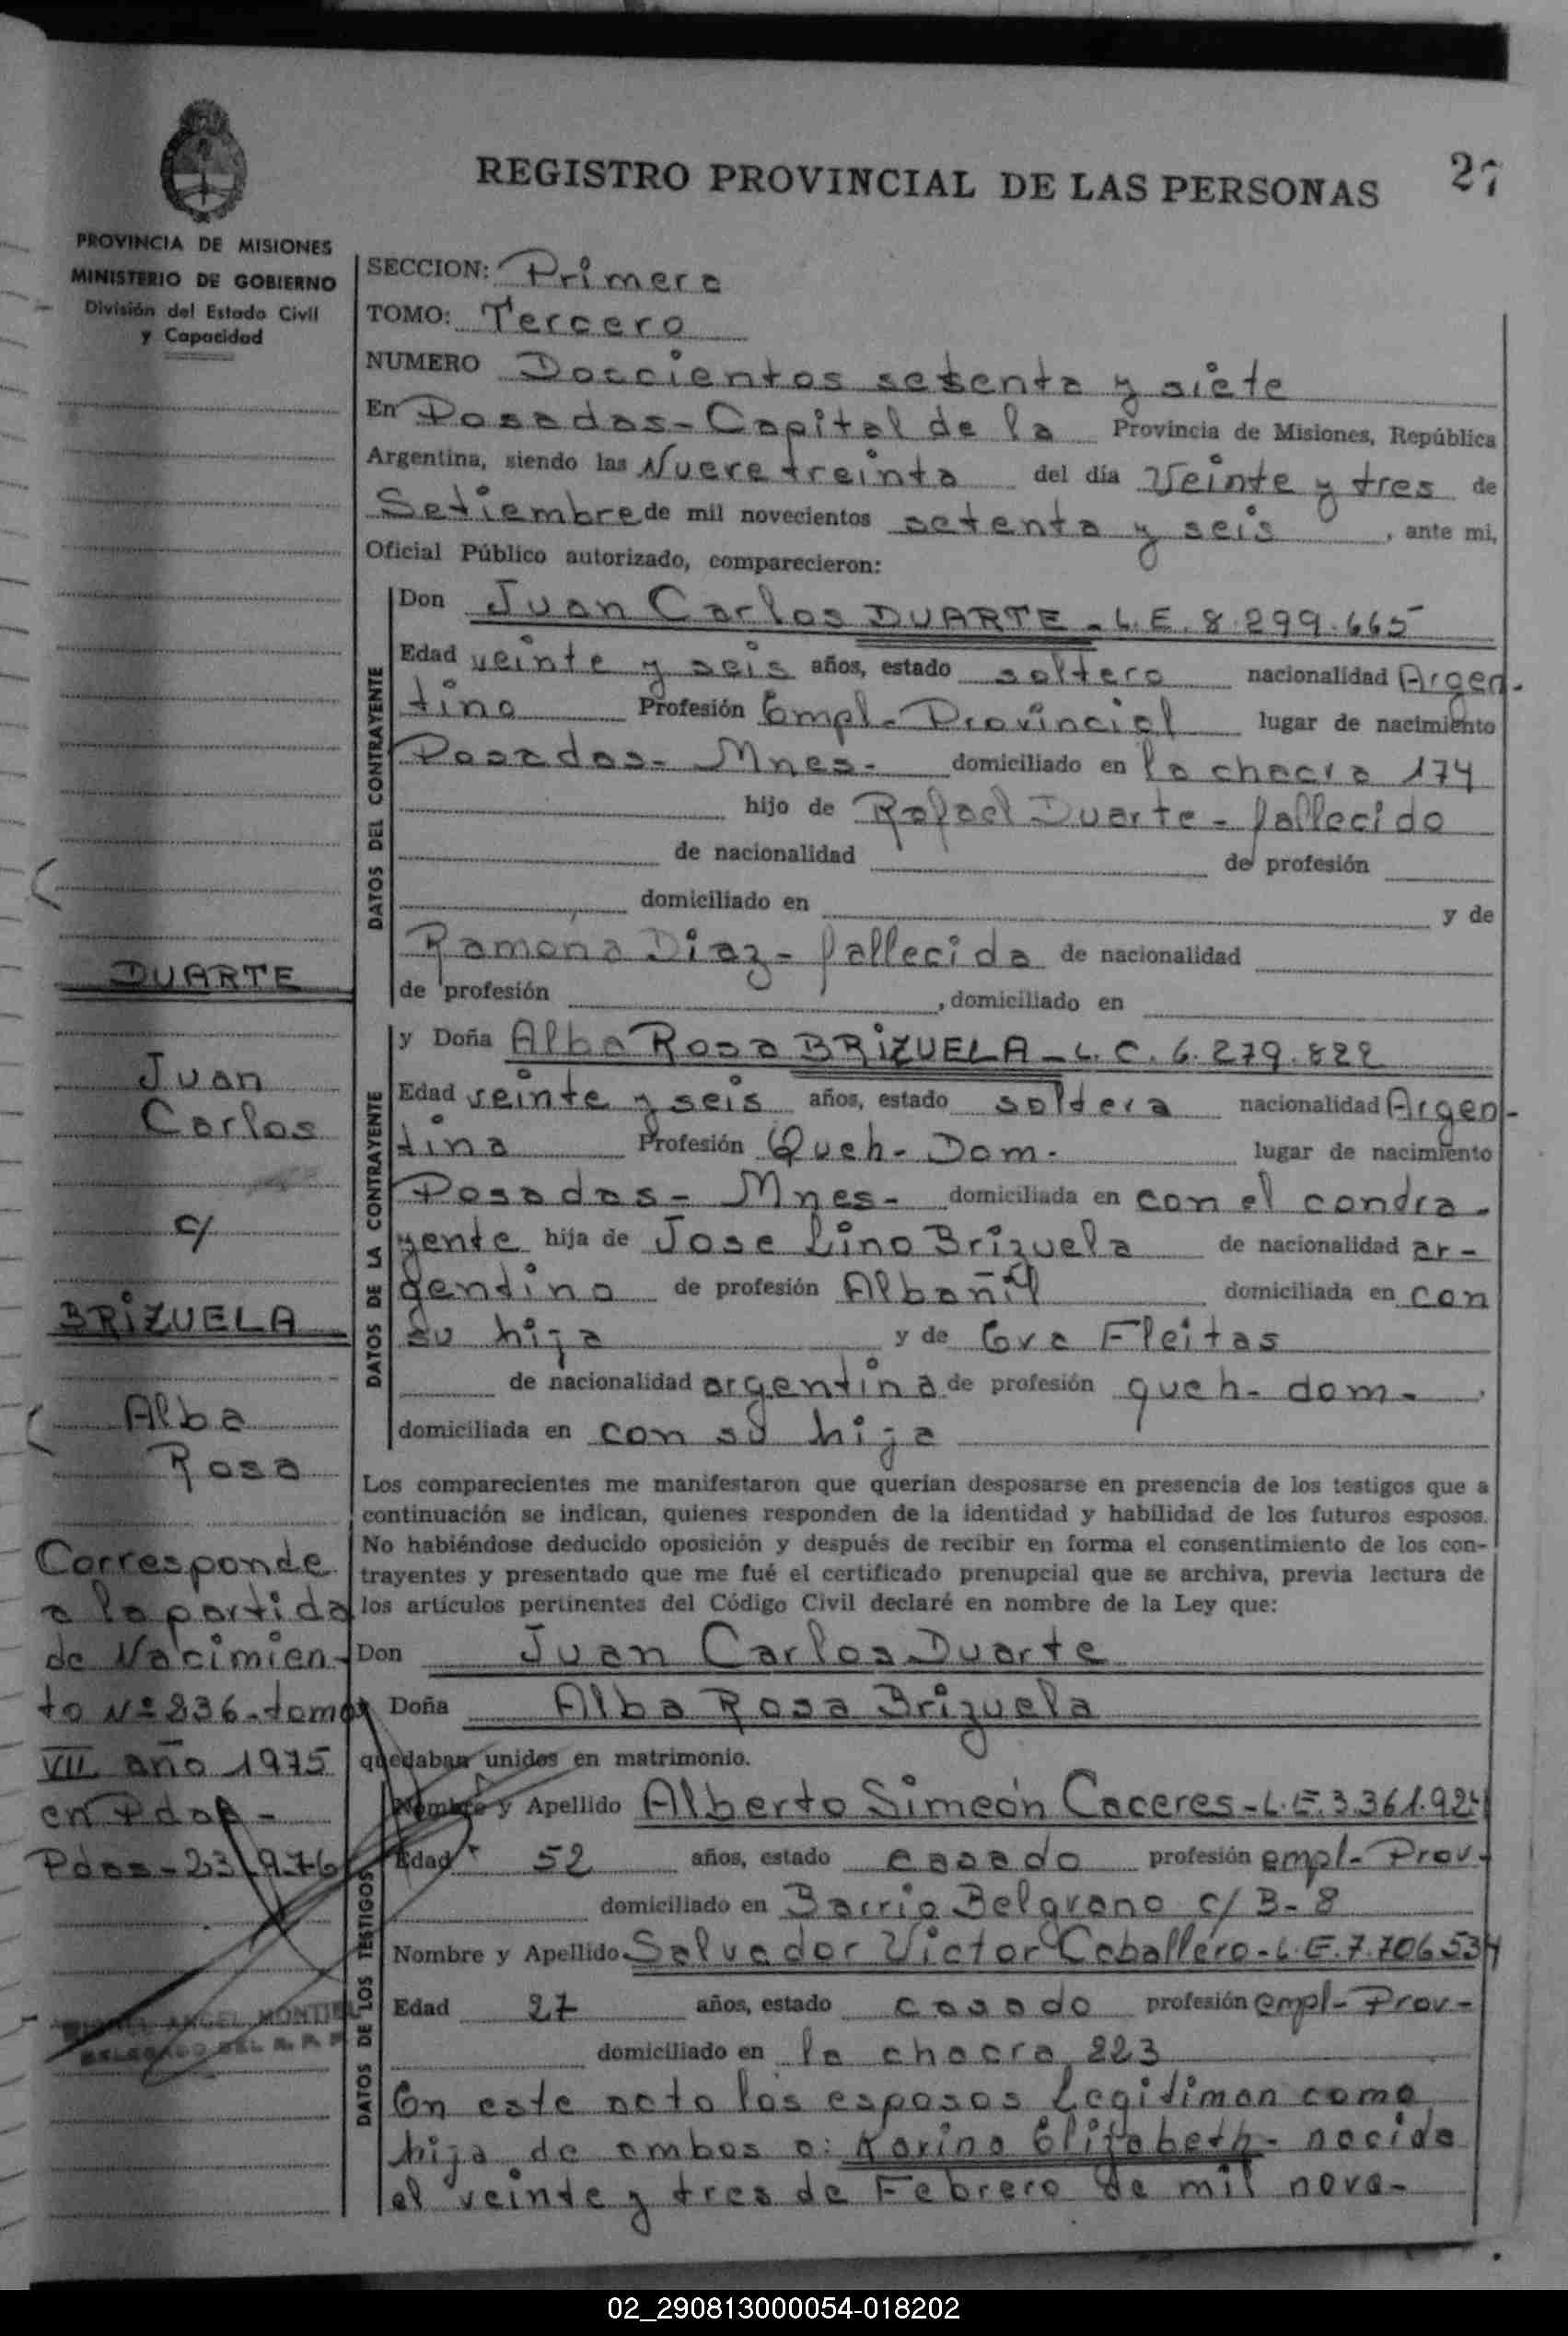 REGISTRO PROVINCIAL DE LAS PERSONAS
27
PROVINCIA DE MISIONES
MINISTERIO DE GOBIERNO
División del Estado Civil
y Capacidad
SECCION: Primera
TOMO: Tercero
NUMERO Doscientos setenta y siete
En Posadas - Capital de la Provincia de Misiones, República
Argentina, siendo las Nueve treinta del día Veinte y tres de
Setiembre de mil novecientos setenta y seis, ante mi,
Oficial Público autorizado, comparecieron:
DATOS DEL CONTRAYENTE
Don Juan Carlos DUARTE - L.E. 8.299.665
Edad veinte y seis años, estado soltero nacionalidad Argen-
tino Profesión Empl- Provincial lugar de nacimiento
Posadas- Mnes- domiciliado en la chacra 174
hijo de Rafael Duarte - fallecido
de nacionalidad de profesión
domiciliado en y de
Ramona Diaz - fallecida de nacionalidad
de profesión , domiciliado en
DATOS DE LA CONTRAYENTE
y Doña Alba Rosa BRIZUELA - L.C. 6.279.822
Edad veinte y seis años, estado soltera nacionalidad Argen-
tina Profesión Queh- Dom- lugar de nacimiento
Posadas - Mnes - domiciliada en con el contra-
yente hija de Jose Lino Brizuela de nacionalidad ar-
gentino de profesión Albañil domiciliada en con
su hija y de Eva Fleitas
de nacionalidad argentina de profesión queh- dom-
domiciliada en con su hija
Los comparecientes me manifestaron que querían desposarse en presencia de los testigos que a
continuación se indican, quienes responden de la identidad y habilidad de los futuros esposos.
No habiéndose deducido oposición y después de recibir en forma el consentimiento de los con-
trayentes y presentado que me fué el certificado prenupcial que se archiva, previa lectura de
los artículos pertinentes del Código Civil declaré en nombre de la Ley que:
Don Juan Carlos Duarte
y Doña Alba Rosa Brizuela
quedaban unidos en matrimonio.
DATOS DE LOS TESTIGOS
Nombre y Apellido Alberto Simeón Caceres - L.E. 3.361.924
Edad 52 años, estado casado profesión empl- Prov-
domiciliado en Barrio Belgrano c/ B- 8
Nombre y Apellido Salvador Victor Caballero - L.E. 7.706.534
Edad 27 años, estado casado profesión empl- Prov-
domiciliado en la chacra 223
En este acto los esposos Legitiman como
hija de ambos a: Karina Elizabeth - nacida
el veinte y tres de Febrero de mil nove-
DUARTE
Juan
Carlos
c/
BRIZUELA
Alba
Rosa
Corresponde
a la partida
de Nacimien-
to Nº 836 - tomo
VII año 1975
en Pdas -
Pdas - 23 9 76
ANGEL MONTIEL
DELEGADO DEL R. P. P.
02_290813000054-018202